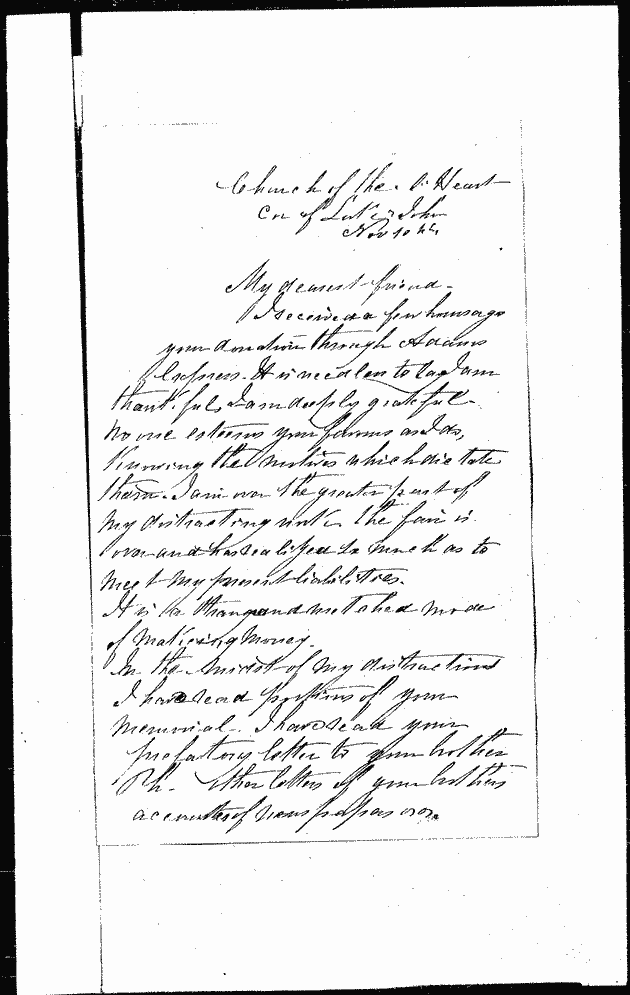 Church of the S. Heart
Cor of Lake & John
Nov 10th
My dearest friend.
I received a few hours ago
your donation through Adams
Express. It is needless to say I am
thankful, I am deeply grateful.
No one esteems your favors as I do,
Knowing the motives which dictate
them. I am over the greater part of
my distracting work. The fair is
over and has realized so much as to
meet my present liabilities.
It is a and wretched mode
of making money.
In the midst of my distractions
I have read portions of your
memorial. I have read your
prefatory letter to your brother
Ph. other letters of your brothers
accounts of newspapers